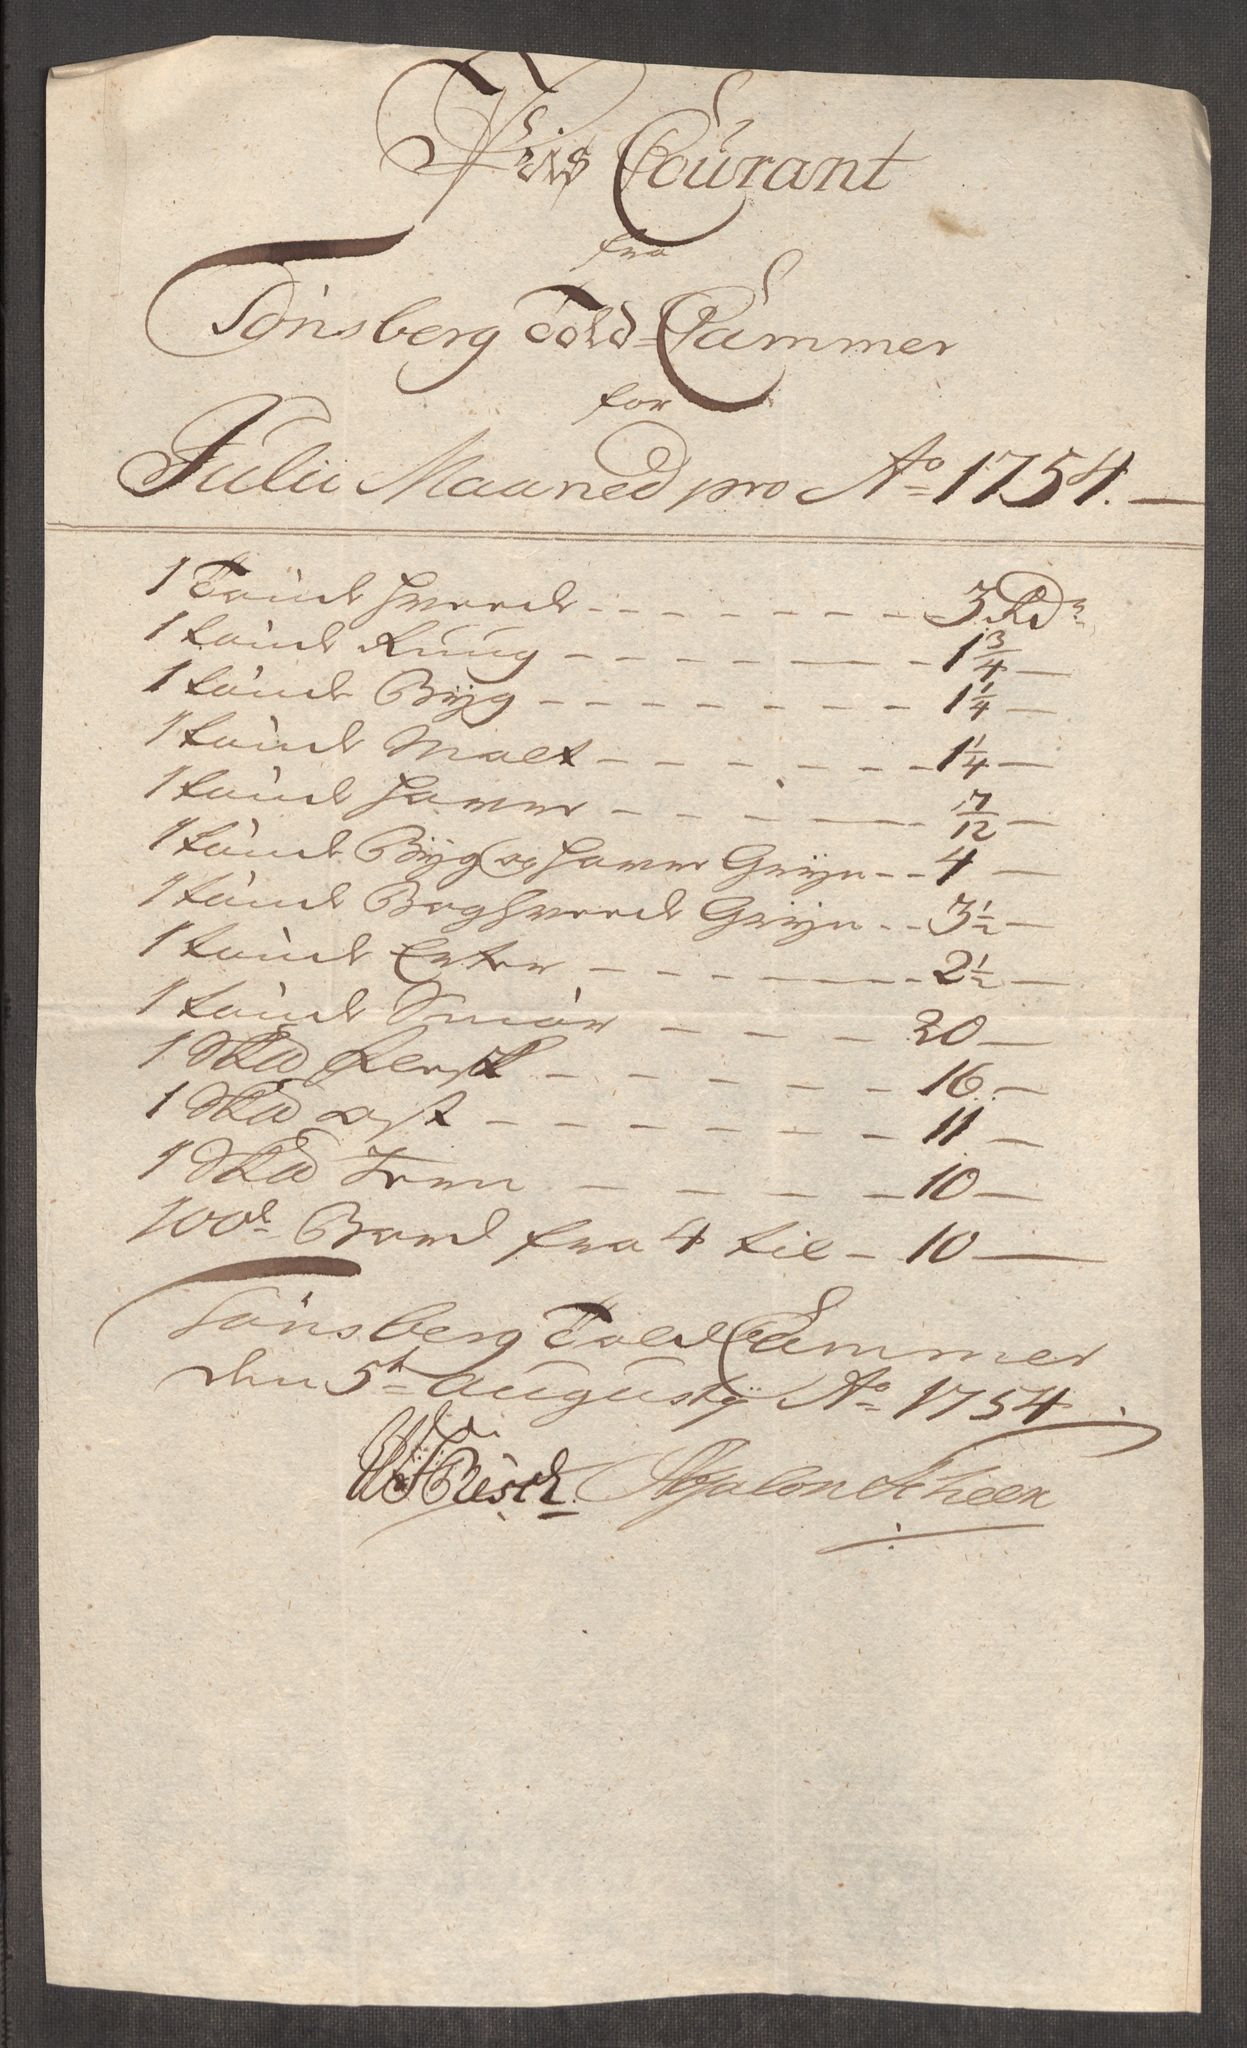 Priis Courant
fra
Tønsberg Told-Cammer
for
Julii Maaned pro Ao 1754.
1 Tønde Hveede 3 Rdr
1 tønde Ruug 1 3/4
1 tønde Byg 1 1/4
1 tønde Malt 1 1/4
1 tønde Haver 7/12
1 tønde Byg og Haver Gryn 4
1 tønde Boghveede Gryn 3 1/2
1 tønde Erter 2 1/2
1 tønde Smør 20
1 Skd flesk 16
1 Skd ost 11
1 Skd Jern 10
100d Bord fra 4 til 10
Tønsberg Told Cammer
den 5t Augusty Ao 1754
Resch. Scheen